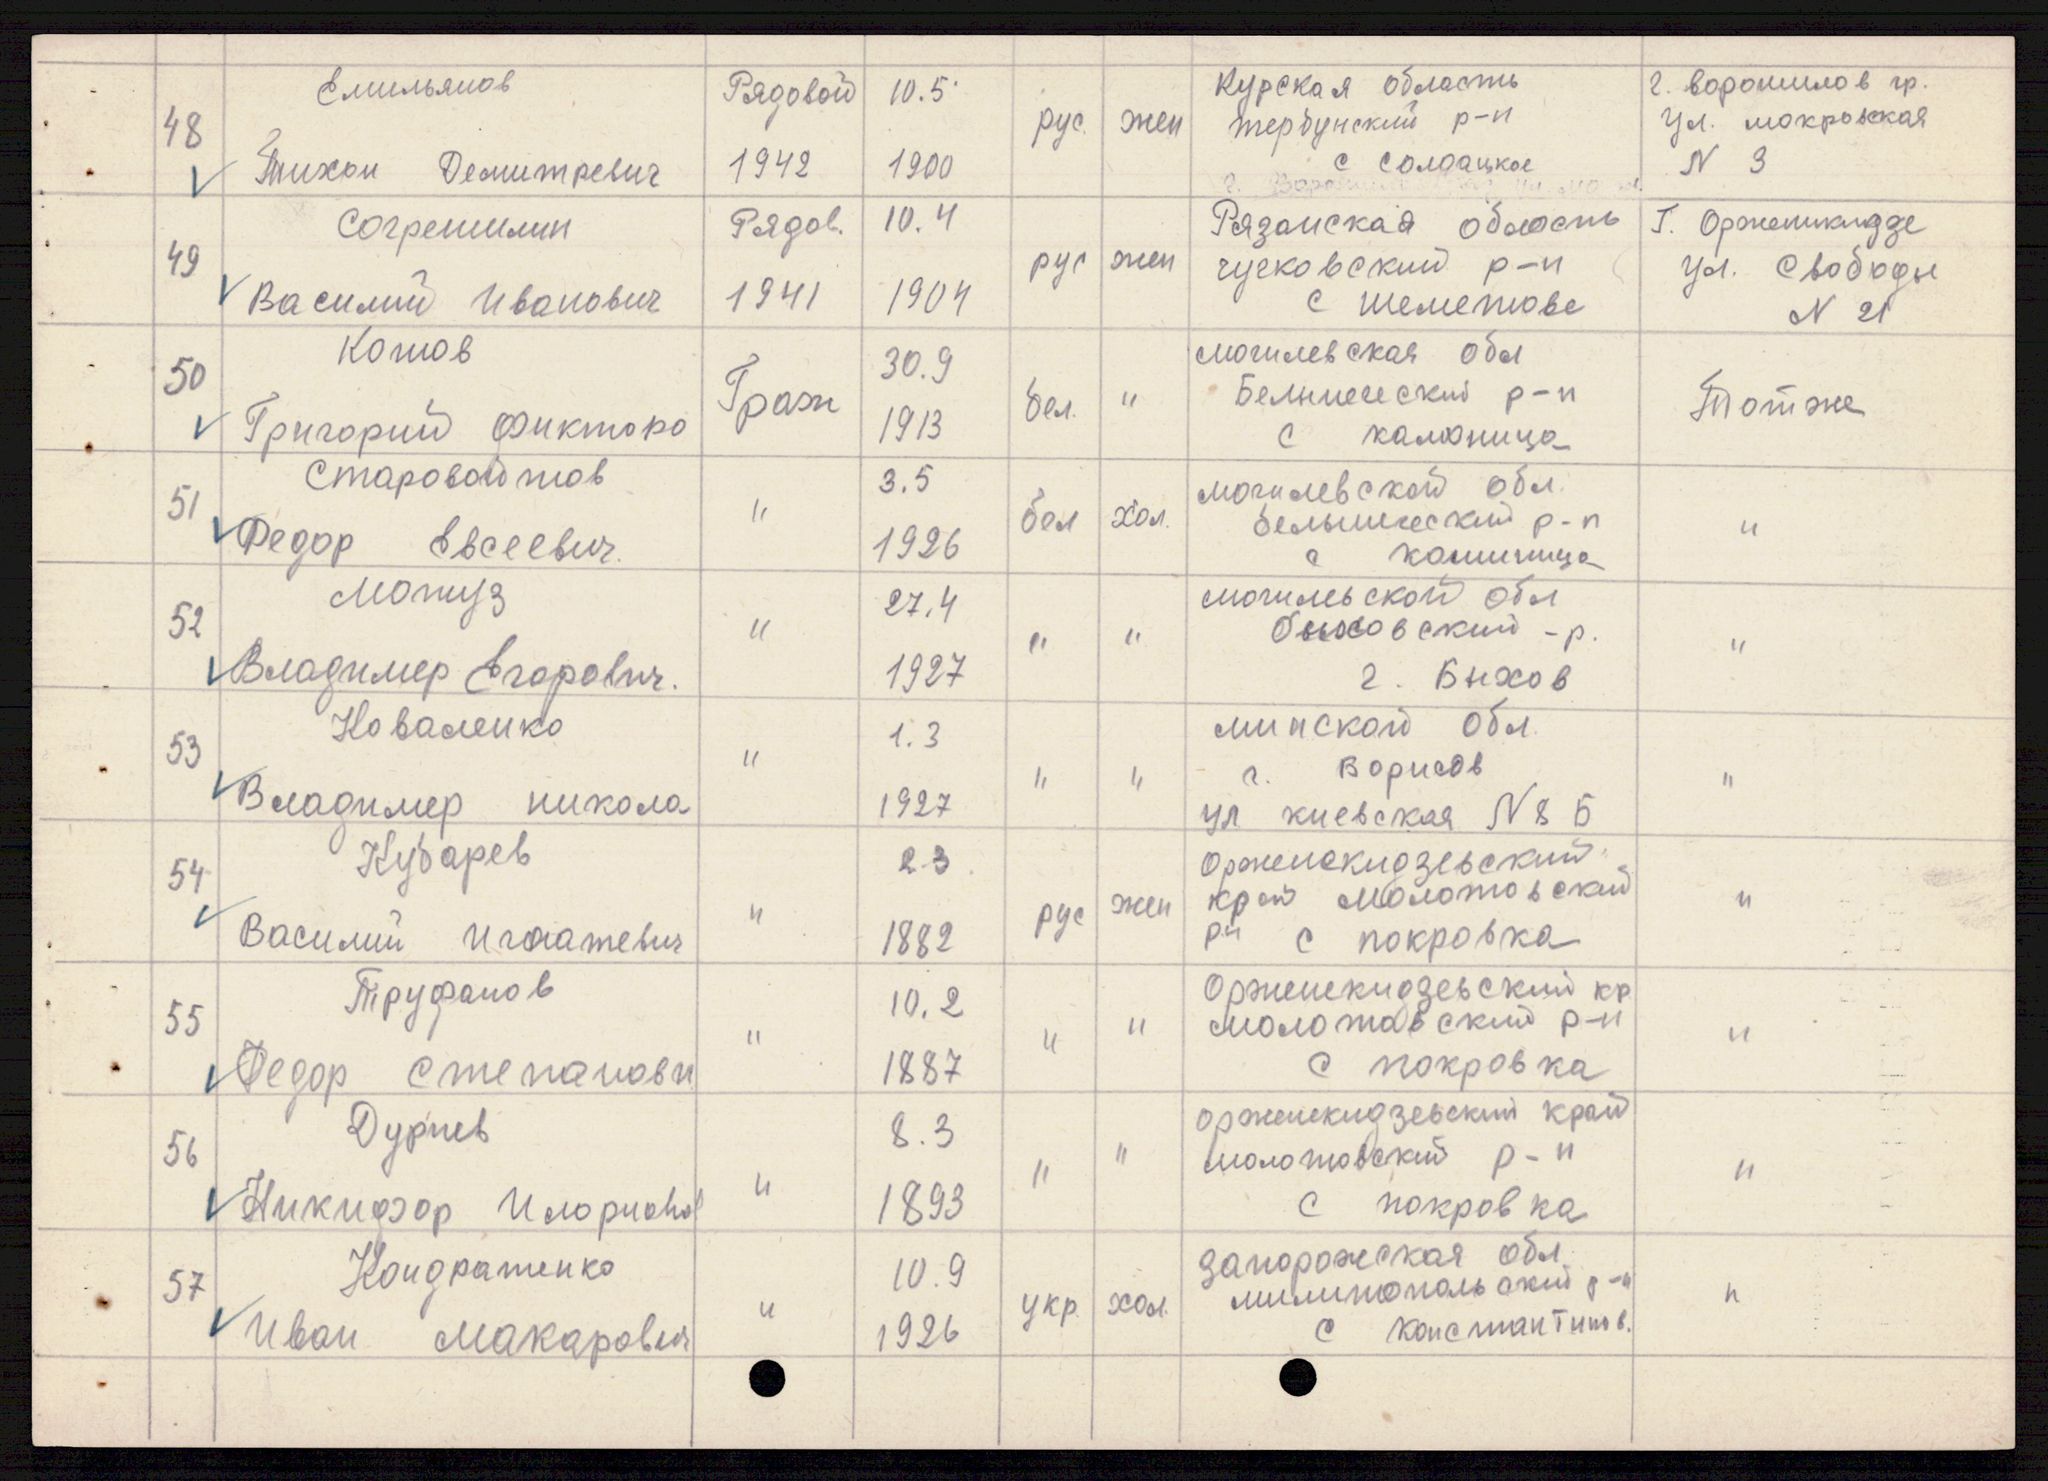 48 Емильянов Рядовой 10.5 рус. жен Курская область г. ворошилов гр.
Тихон Демитревич 1942 1900 тербунский р-н ул. мокровская
с солдацкое N 3
49 Согрешилин Рядов. 10.4 рус жен Рязанская область Г. Орженикидзе
Василий Иванович 1941 1904 чучковский р-н ул. Свободы
с шеметове N 21
50 Котов Граж 30.9 бел. " могилевская обл Тотже
Григорий Фикторо 1913 Белынический р-н
с
51 Старовойтов " 3.5 бел хол. могилевской обл. "
Федор Евсеевич. 1926 белынический р-н
с
52 Мотуз " 27.4 " " могильской обл "
Владимер Егорович. 1927 быховский -р.
г. Быхов
53 Коваленко " 1.3 " " минской обл. "
Владимер никола 1927 г. Борисов
ул киевская N 8 Б
54 Кубарев " 2 3 рус жен Орженикидзевский "
Василий Игнатевич 1882 край Молотовский
рн с покровка
55 Труфанов " 10.2 " " Орженикидзевский кр "
Федор Степанови 1887 Молотовский р-н
с покровка
56 Дурнев " 8.3 " " орженикидзевский край "
Никифор Илорионов 1893 молотовский р-н
с покровка
57 Кондратенко " 10.9 укр хол. запорожская обл. "
Иван Макарович 1926 милитопольский р-н
с константинов.